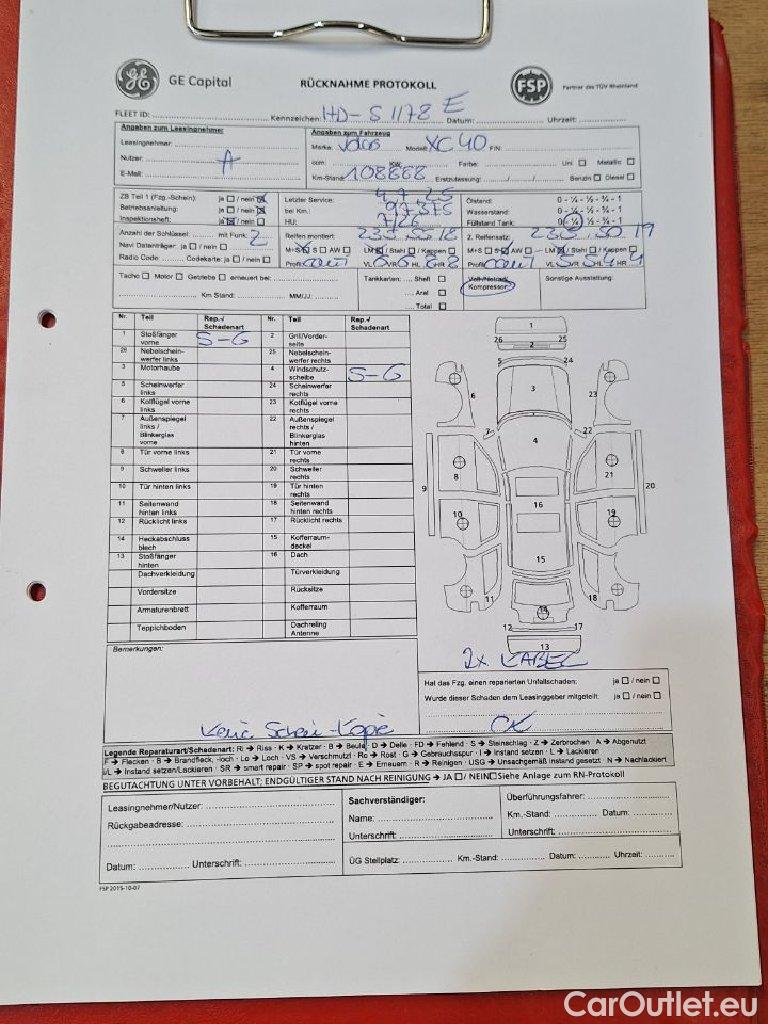 GE Capital RÜCKNAHME PROTOKOLL FSP Partner des TÜV Rheinland
FLEET ID: Kennzeichen: HD-S 1178 E Datum: Uhrzeit:
Angaben zum Leasingnehmer Angaben zum Fahrzeug
Leasingnehmer Marke: Modell: XC40 FIN:
Nutzer: A ccm: KW: Farbe: Uni Metallic
E-Mail: Km-Stand: 108888 Erstzulassung: Benzin Diesel
ZB Teil 1 (Fzg.-Schein): ja / nein Letzter Service: 4.7.25 Ölstand: 0 - ¼ - ½ - ¾ - 1
Betriebsanleitung: ja / nein bei Km.: 97375 Wasserstand: 0 - ¼ - ½ - ¾ - 1
Inspektionsheft: ja / nein HU: 7/26 Füllstand Tank: 0 - ¼ - ½ - ¾ - 1
Anzahl der Schlüssel: mit Funk: 2 Reifen montiert: 235 55 18 2. Reifensatz: 235 50 19
Navi Datenträger: ja / nein M+S S AW LM / Stahl / Kappen M+S S AW LM / Stahl / Kappen
Radio Code: Codekarte: ja / nein Profil VL VR HL HR Profil VL 5 VR 5 HL 4 HR 4
Tacho Motor Getriebe erneuert bei: Tankkarten: Shell Sonstige Ausstattung:
Kompressor
Aral
Km Stand: MM/JJ: Total
Nr. Teil Rep./ Schadenart Nr. Teil Rep./ Schadenart
1 Stoßfänger vorne S-G 2 Grill/Vorderseite
26 Nebelscheinwerfer links 25 Nebelscheinwerfer rechts
3 Motorhaube 4 Windschutzscheibe S-G
5 Scheinwerfer links 24 Scheinwerfer rechts
6 Kotflügel vorne links 23 Kotflügel vorne rechts
7 Außenspiegel links / Blinkerglas vorne 22 Außenspiegel rechts / Blinkerglas hinten
8 Tür vorne links 21 Tür vorne rechts
9 Schweller links 20 Schweller rechts
10 Tür hinten links 19 Tür hinten rechts
11 Seitenwand hinten links 18 Seitenwand hinten rechts
12 Rücklicht links 17 Rücklicht rechts
14 Heckabschluss blech 15 Kofferraumdeckel
13 Stoßfänger hinten 16 Dach
Dachverkleidung Türverkleidung
Vordersitze Rücksitze
Armaturenbrett Kofferraum
Teppichboden Dachreling Antenne
1
26 2 25
5 24
6 3 23
7 22
4
8 21
9 20
16
10 19
15
11 18
14
12 17
13
2x KABEL
Bemerkungen:
Hat das Fzg. einen reparierten Unfallschaden: ja / nein
Wurde dieser Schaden dem Leasinggeber mitgeteilt: ja / nein
Keine Schein-Kopie OK
Legende Reparaturart/Schadenart: Ri → Riss - K → Kratzer - B → Beule - D → Delle - FD → Fehlend - S → Steinschlag - Z → Zerbrochen - A → Abgenutzt
F → Flecken - B → Brandfleck, -loch - Lo → Loch - VS → Verschmutzt - Ro → Rost - G → Gebrauchsspur - I → Instand setzen - L → Lackieren
I/L → Instand setzen/Lackieren - SR → smart repair - SP → spot repair - E → Erneuern - R → Reinigen - USG → Unsachgemäß instand gesetzt - N → Nachlackiert
BEGUTACHTUNG UNTER VORBEHALT; ENDGÜLTIGER STAND NACH REINIGUNG → JA / NEIN Siehe Anlage zum RN-Protokoll
Leasingnehmer/Nutzer: Sachverständiger: Überführungsfahrer:
Rückgabeadresse: Name: Km.-Stand: Datum:
Unterschrift: Unterschrift:
Datum: Unterschrift: ÜG Stellplatz: Km.-Stand: Datum: Uhrzeit:
FSP 2015-10-07
CarOutlet.eu